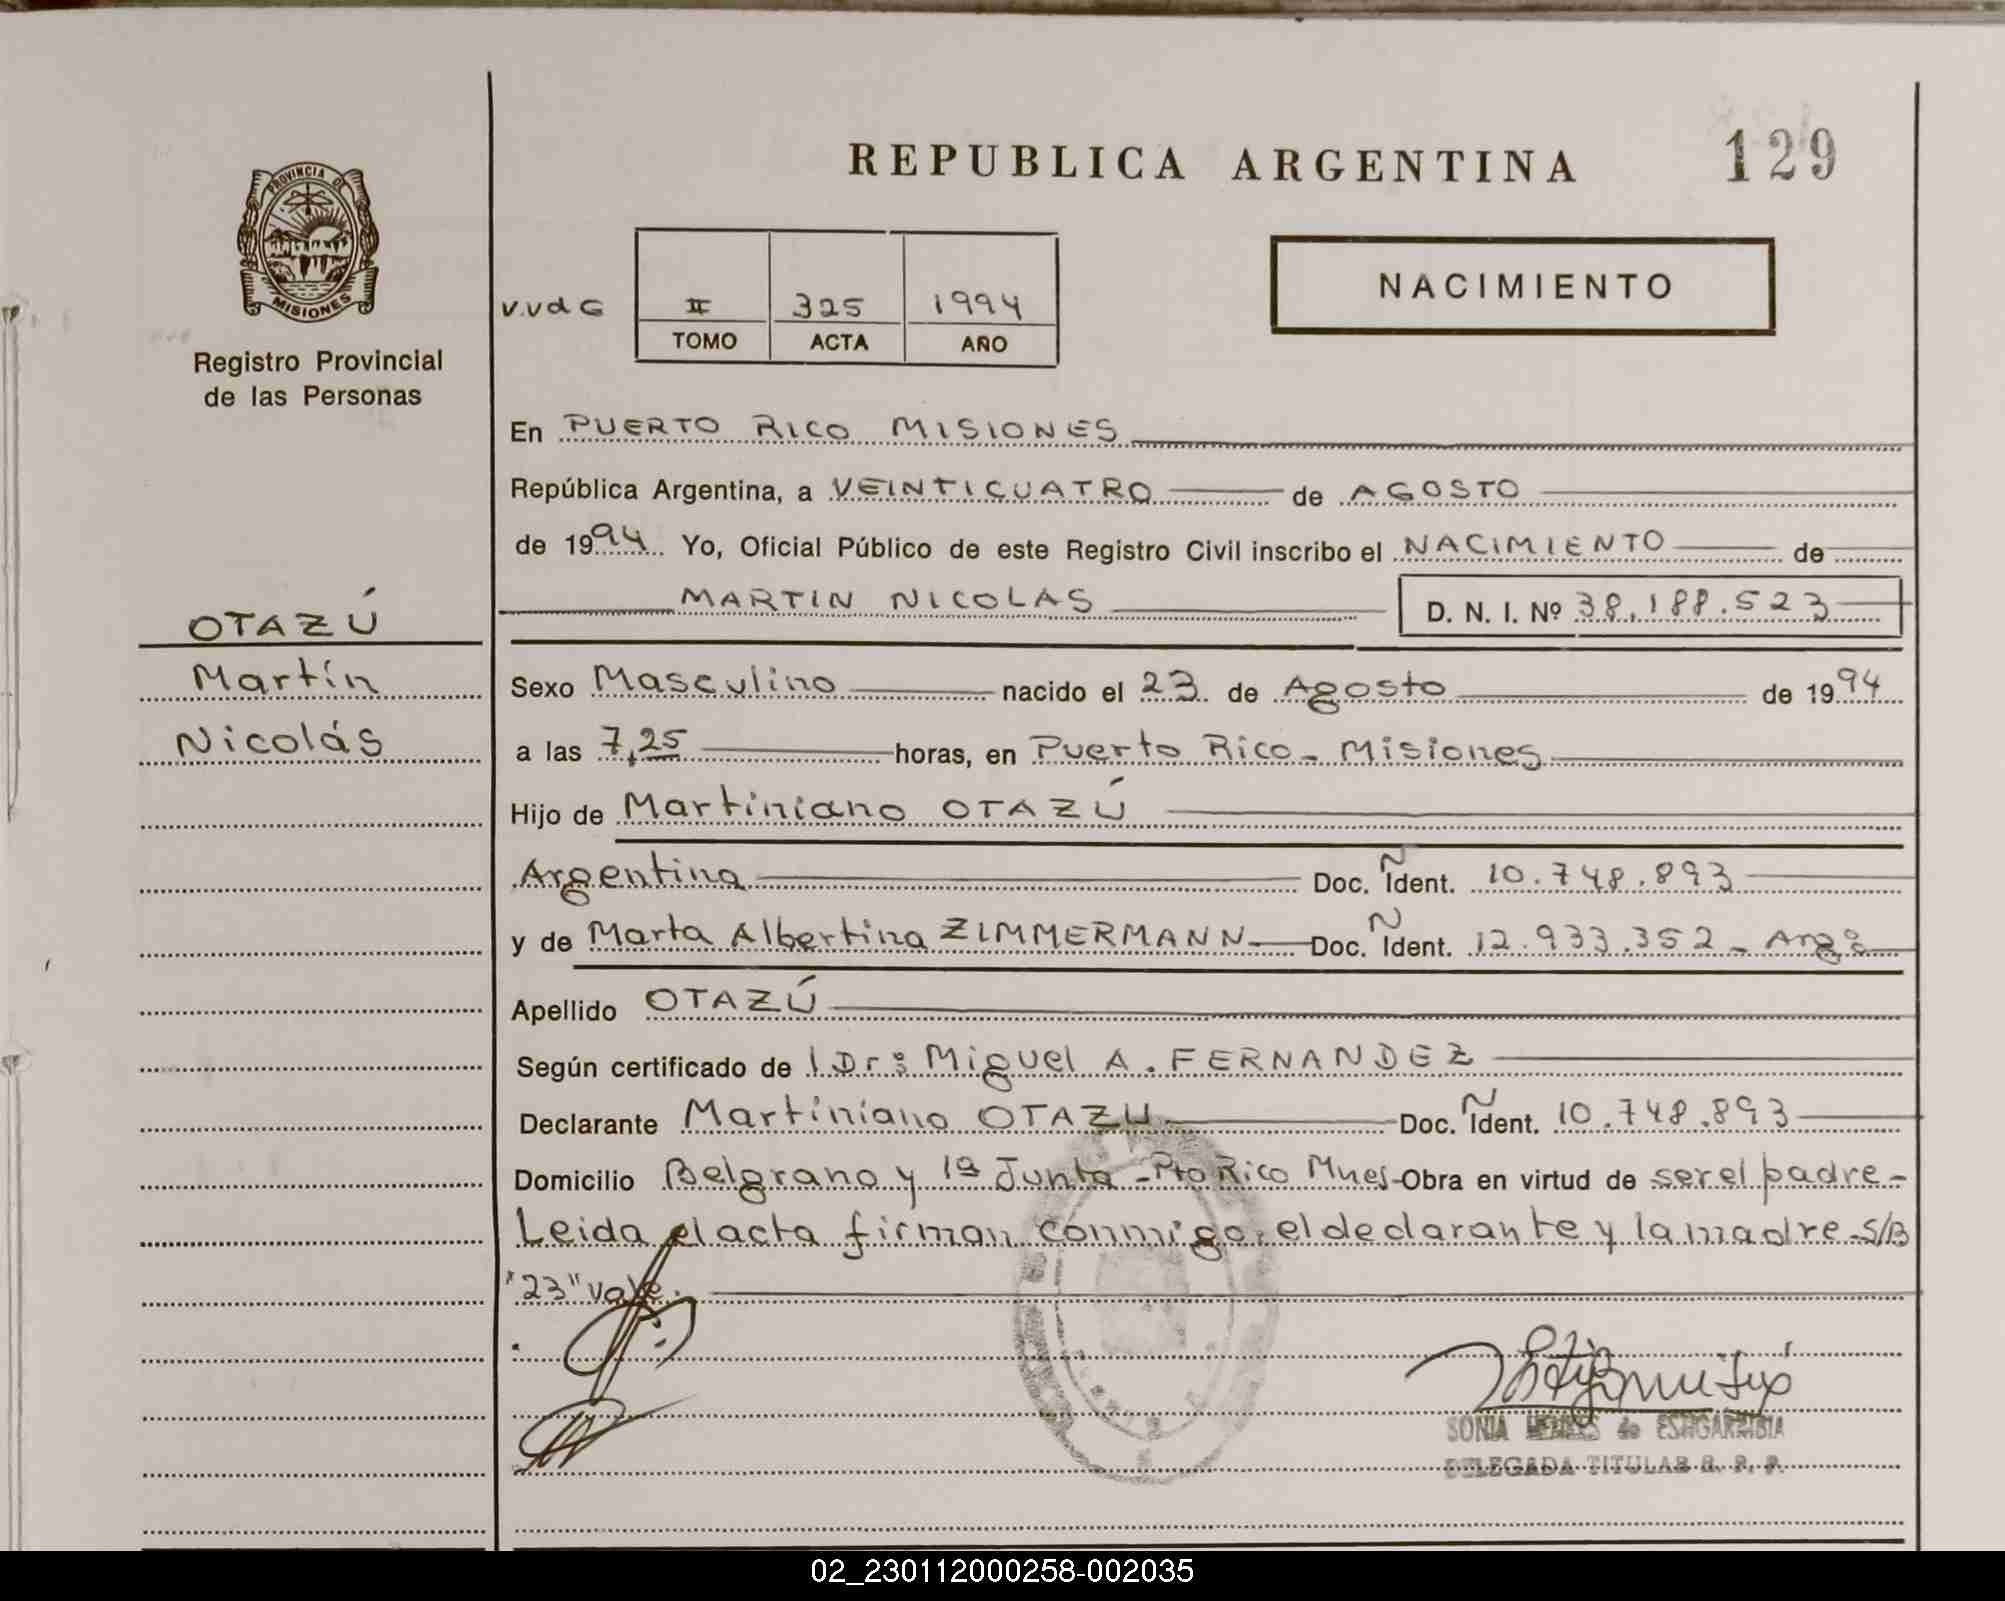 REPUBLICA ARGENTINA
129
PROVINCIA DE
MISIONES
Registro Provincial
de las Personas
V.V d G
II 325 1994
TOMO ACTA AÑO
NACIMIENTO
En PUERTO RICO MISIONES
República Argentina, a VEINTICUATRO de AGOSTO
de 1994 Yo, Oficial Público de este Registro Civil inscribo el NACIMIENTO de
MARTIN NICOLAS D. N. I. Nº 38.188.523
OTAZÚ
Martín
Nicolás
Sexo Masculino nacido el 23 de Agosto de 1994
a las 7,25 horas, en Puerto Rico - Misiones
Hijo de Martiniano OTAZÚ
Argentina Doc. N Ident. 10.748.893
y de Marta Albertina ZIMMERMANN Doc. N Ident. 12.933.352 - Arg.
Apellido OTAZÚ
Según certificado de l Dr: Miguel A. FERNANDEZ
Declarante Martiniano OTAZU Doc. N Ident. 10.748.893
Domicilio Belgrano y 1ª Junta - Pto Rico Mnes - Obra en virtud de ser el padre -
Leida el acta firman conmigo, el declarante y la madre - S/B
"23" vale.
SONIA de ESTIGARRIBIA
DELEGADA TITULAR R. P. P.
02_230112000258-002035